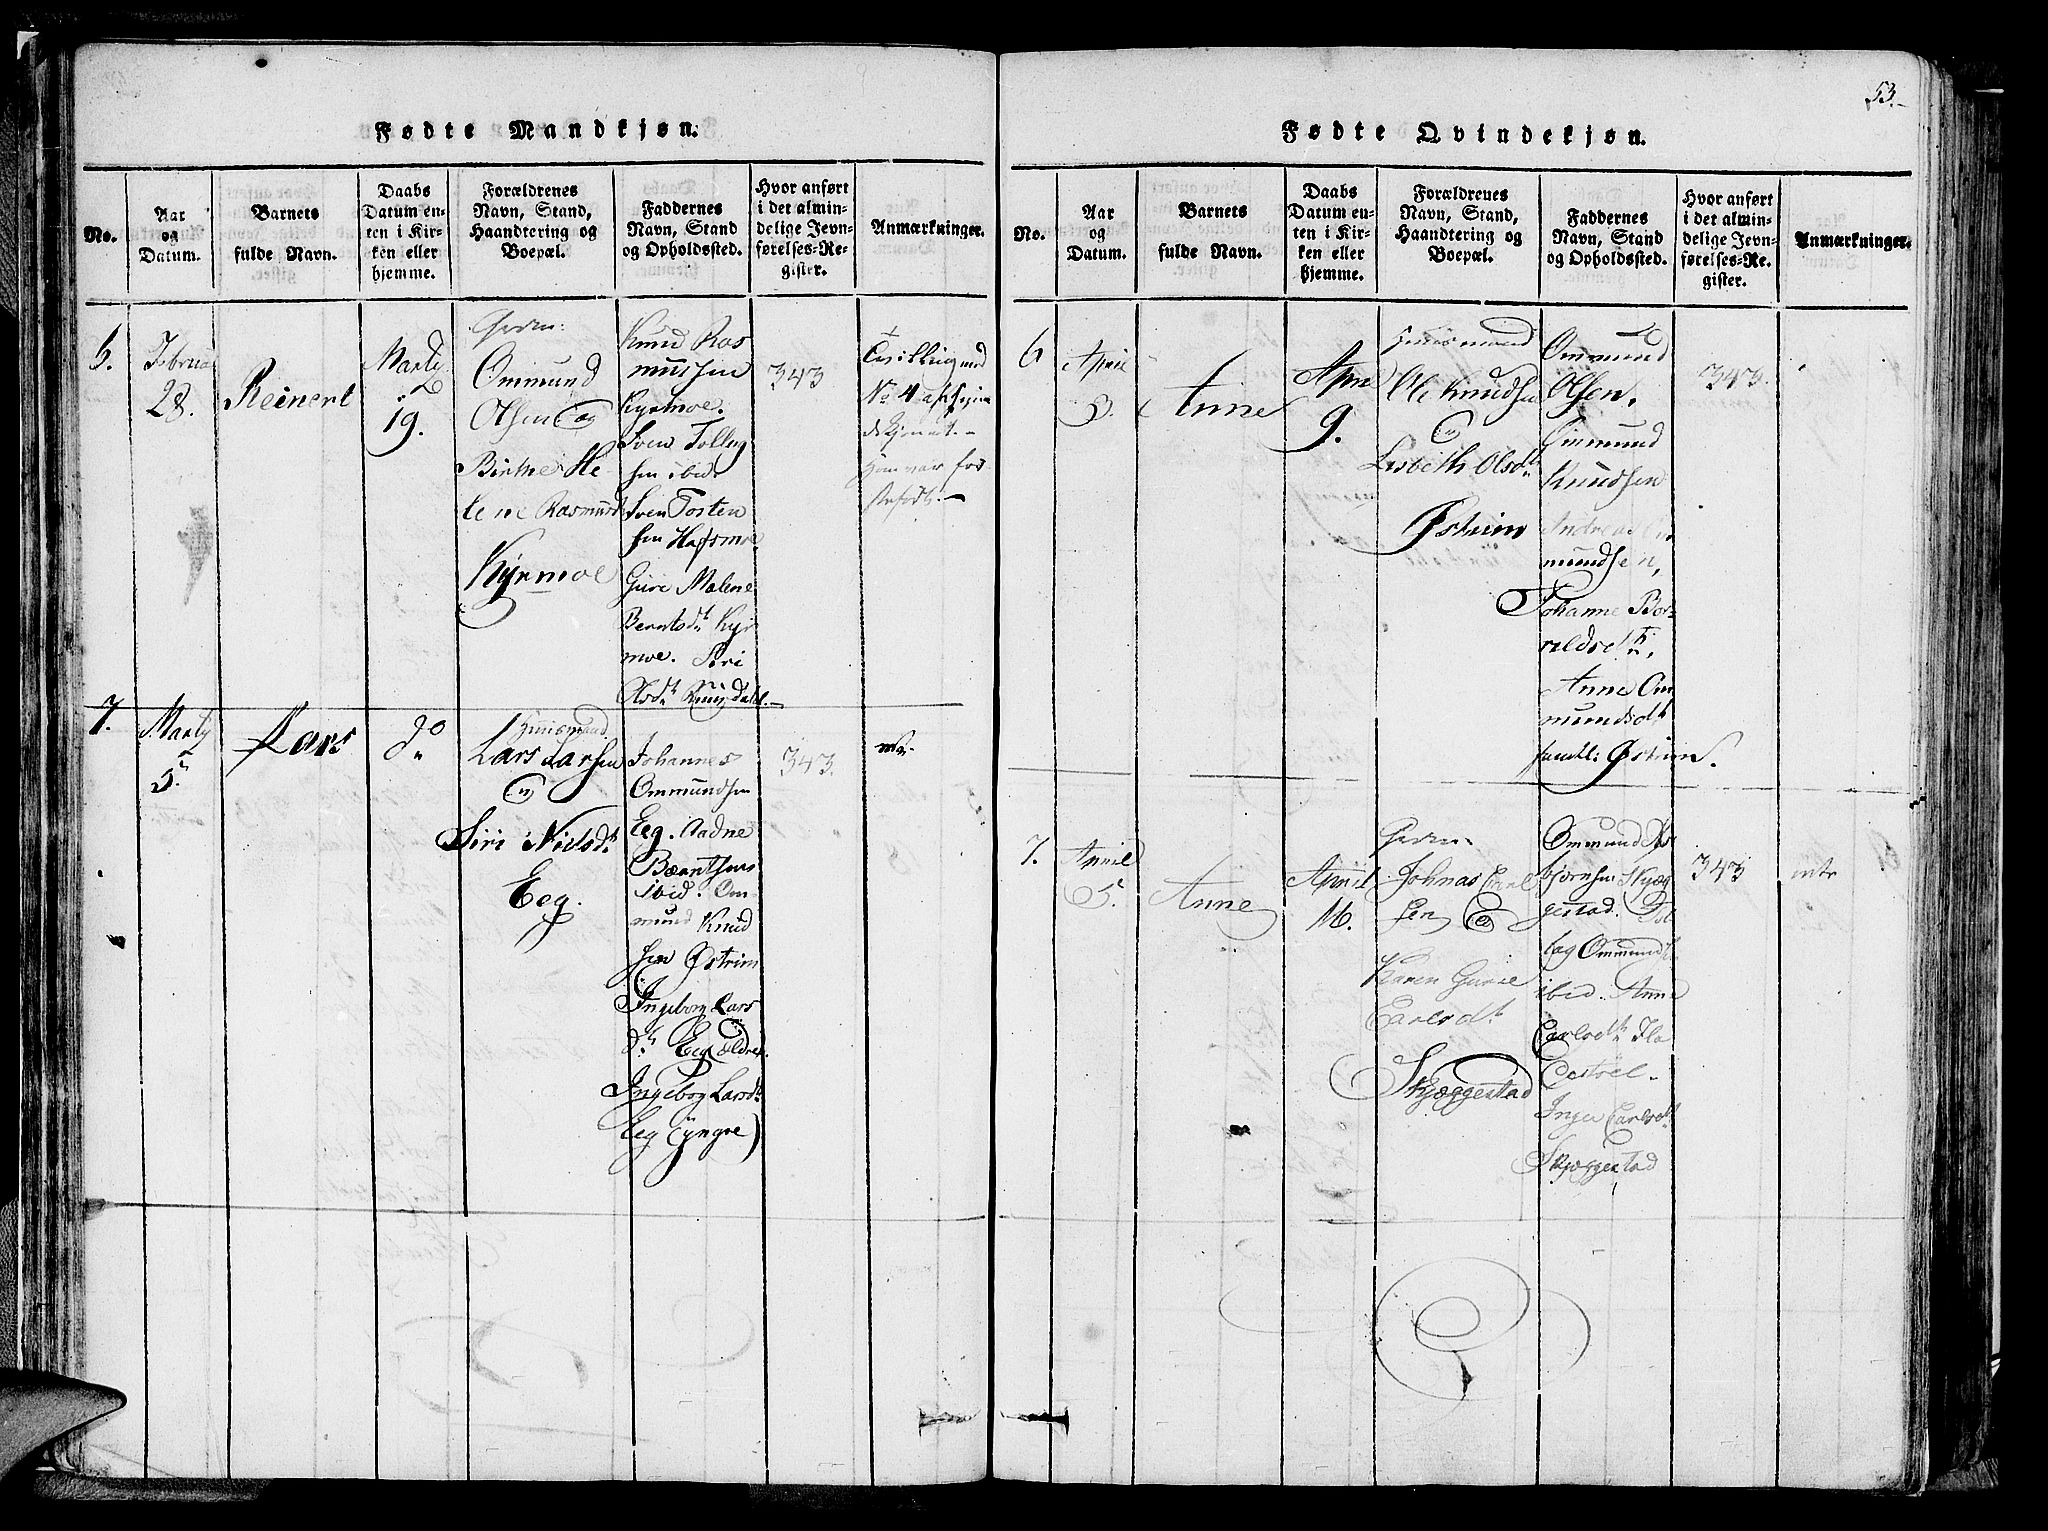 53.
Fødte Mandkjøn.
No.
Aar
og
Datum.
Barnets
fulde Navn.
Daabs
Datum en-
ten i Kir-
ken eller
hjemme.
Forældrenes
Navn, Stand,
Haandtering og
Boepæl.
Faddernes
Navn, Stand
og Opholdssted.
Hvor anført
i det almin-
delige Jevn-
førelses-Re-
gister.
Anmærkninger.
6.
Februar
28.
Reinert
Marty
19.
Ommund
Olsen og
Birthe He-
lene Rasmusd.
Kyrmoe
Knud Ras
mussen
Kyrmoe.
Sven Tolleg
sen ibid.
Sven Tosten
sen Hafsmoe
Gure Malene
Berntsdt. Kyr
moe. Siri
Olsdt.
343
Tvilling med
No 4 af
kjønnet.
Han var før
stefødt.
7.
Marty
5.
Lars
do
Huusmand
Lars Larsen
og
Siri Nielsdt.
Eeg.
Johannes
Ommundsen
Eeg. Aadne
Bærnthsen
ibid. Om-
mund Knud
sen Østrim
Ingeborg Lars
dt. Eeg ældre.
Ingeborg Larsdt.
Eeg (yngre)
343.
Fødte Qvindekjøn.
No.
Aar
og
Datum.
Barnets
fulde Navn.
Daabs
Datum en-
ten i Kir-
ken eller
hjemme.
Forældrenes
Navn, Stand,
Haandtering og
Boepæl.
Faddernes
Navn, Stand
og Opholdssted.
Hvor anført
i det almin-
delige Jevn-
førelses-Re-
gister.
Anmærkninger.
6
April
3.
Anne
April
9.
Huusmand
Ole Knudsen
og
Lisbeth Olsdt.
Østrim
Ommund
Olsen.
Ommund
Knudsen
Andreas Om
mundsen,
Johanne Bo-
rildsdt.,
Anne Om
mundsdt.
samtl: Østrim.
343.
7.
April
5.
Anne
April
16.
Johnas Carl
sen og
Karen Gurie
Carlsdt.
Skjæggestad
Ommund As
bjørnsen Skjæg
gestad. Tol
lag Ommunds.
ibid. Anne
Carlsdt. Fla
Inger Carlsdt.
Skjæggestad
343
intet